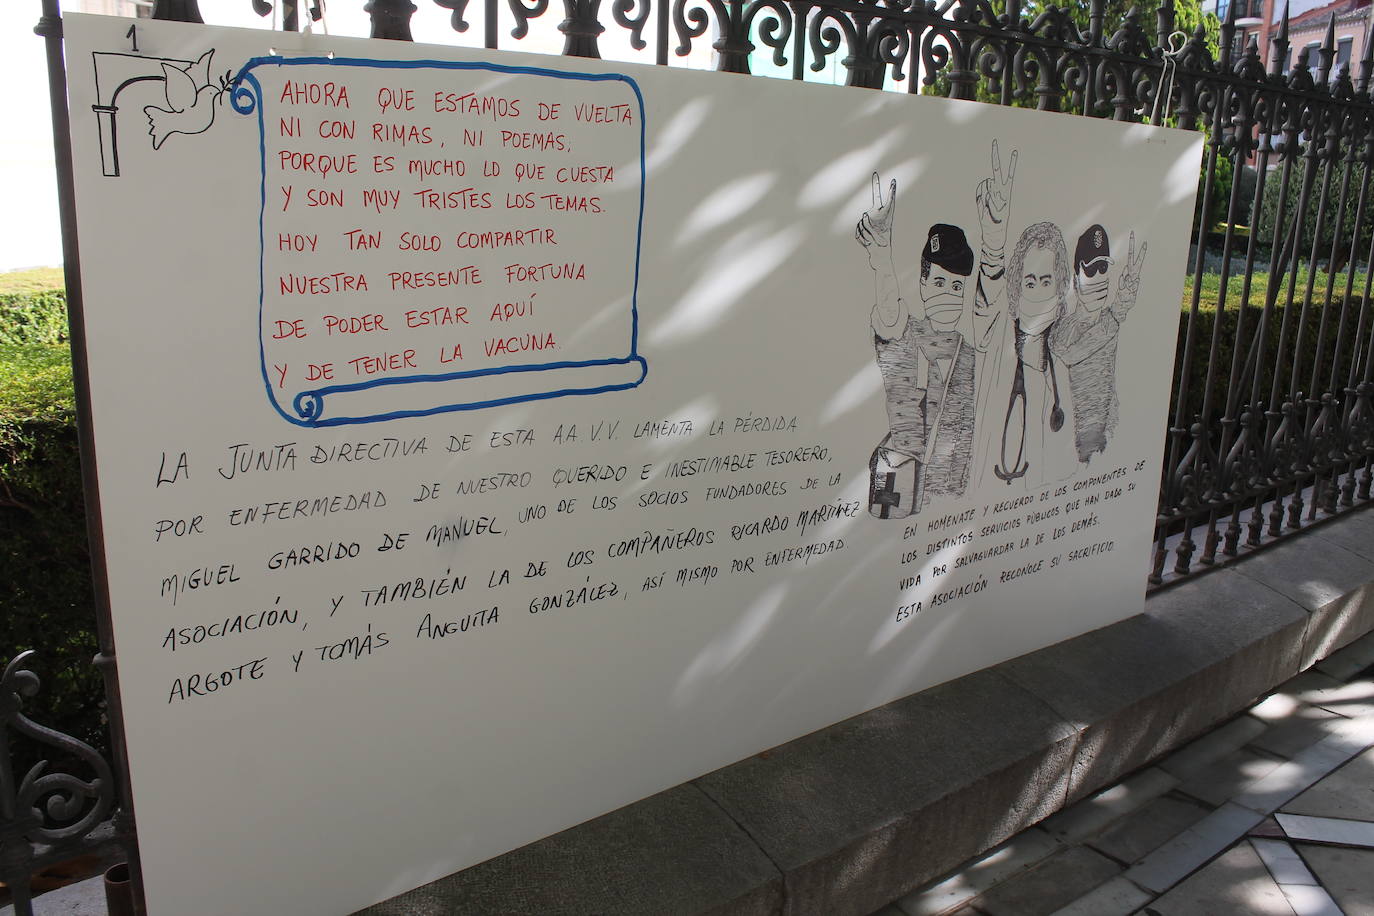 1
AHORA QUE ESTAMOS DE VUELTA
NI CON RIMAS, NI POEMAS,
PORQUE ES MUCHO LO QUE CUESTA
Y SON MUY TRISTES LOS TEMAS.
HOY TAN SOLO COMPARTIR
NUESTRA PRESENTE FORTUNA
DE PODER ESTAR AQUÍ
Y DE TENER LA VACUNA.
LA JUNTA DIRECTIVA DE ESTA AA.V.V. LAMENTA LA PÉRDIDA
POR ENFERMEDAD DE NUESTRO QUERIDO E INESTIMABLE TESORERO,
MIGUEL GARRIDO DE MANUEL, UNO DE LOS SOCIOS FUNDADORES DE LA
ASOCIACIÓN, Y TAMBIÉN LA DE LOS COMPAÑEROS RICARDO MARTÍNEZ
ARGOTE Y TOMÁS ANGUITA GONZÁLEZ, ASÍ MISMO POR ENFERMEDAD.
EN HOMENATE Y RECUERDO DE LOS COMPONENTES DE
LOS DISTINTOS SERVICIOS PÚBLICOS QUE HAN DADO SU
VIDA POR SALVAGUARDAR LA DE LOS DEMÁS.
ESTA ASOCIACIÓN RECONOCE SU SACRIFICIO.